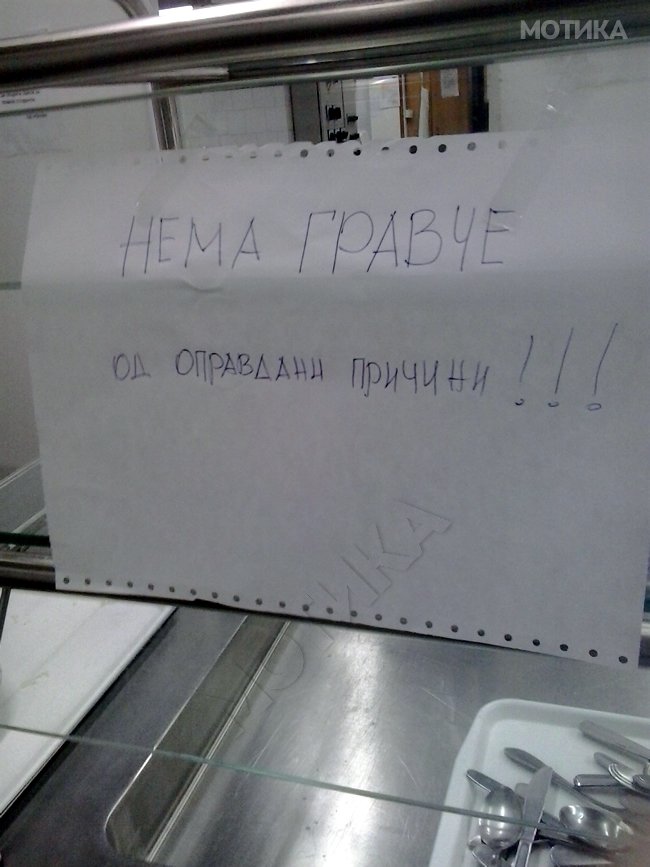 МОТИКА
НЕМА ГРАВЧЕ
ОД ОПРАВДАНИ ПРИЧИНИ!!!
МОТИКА